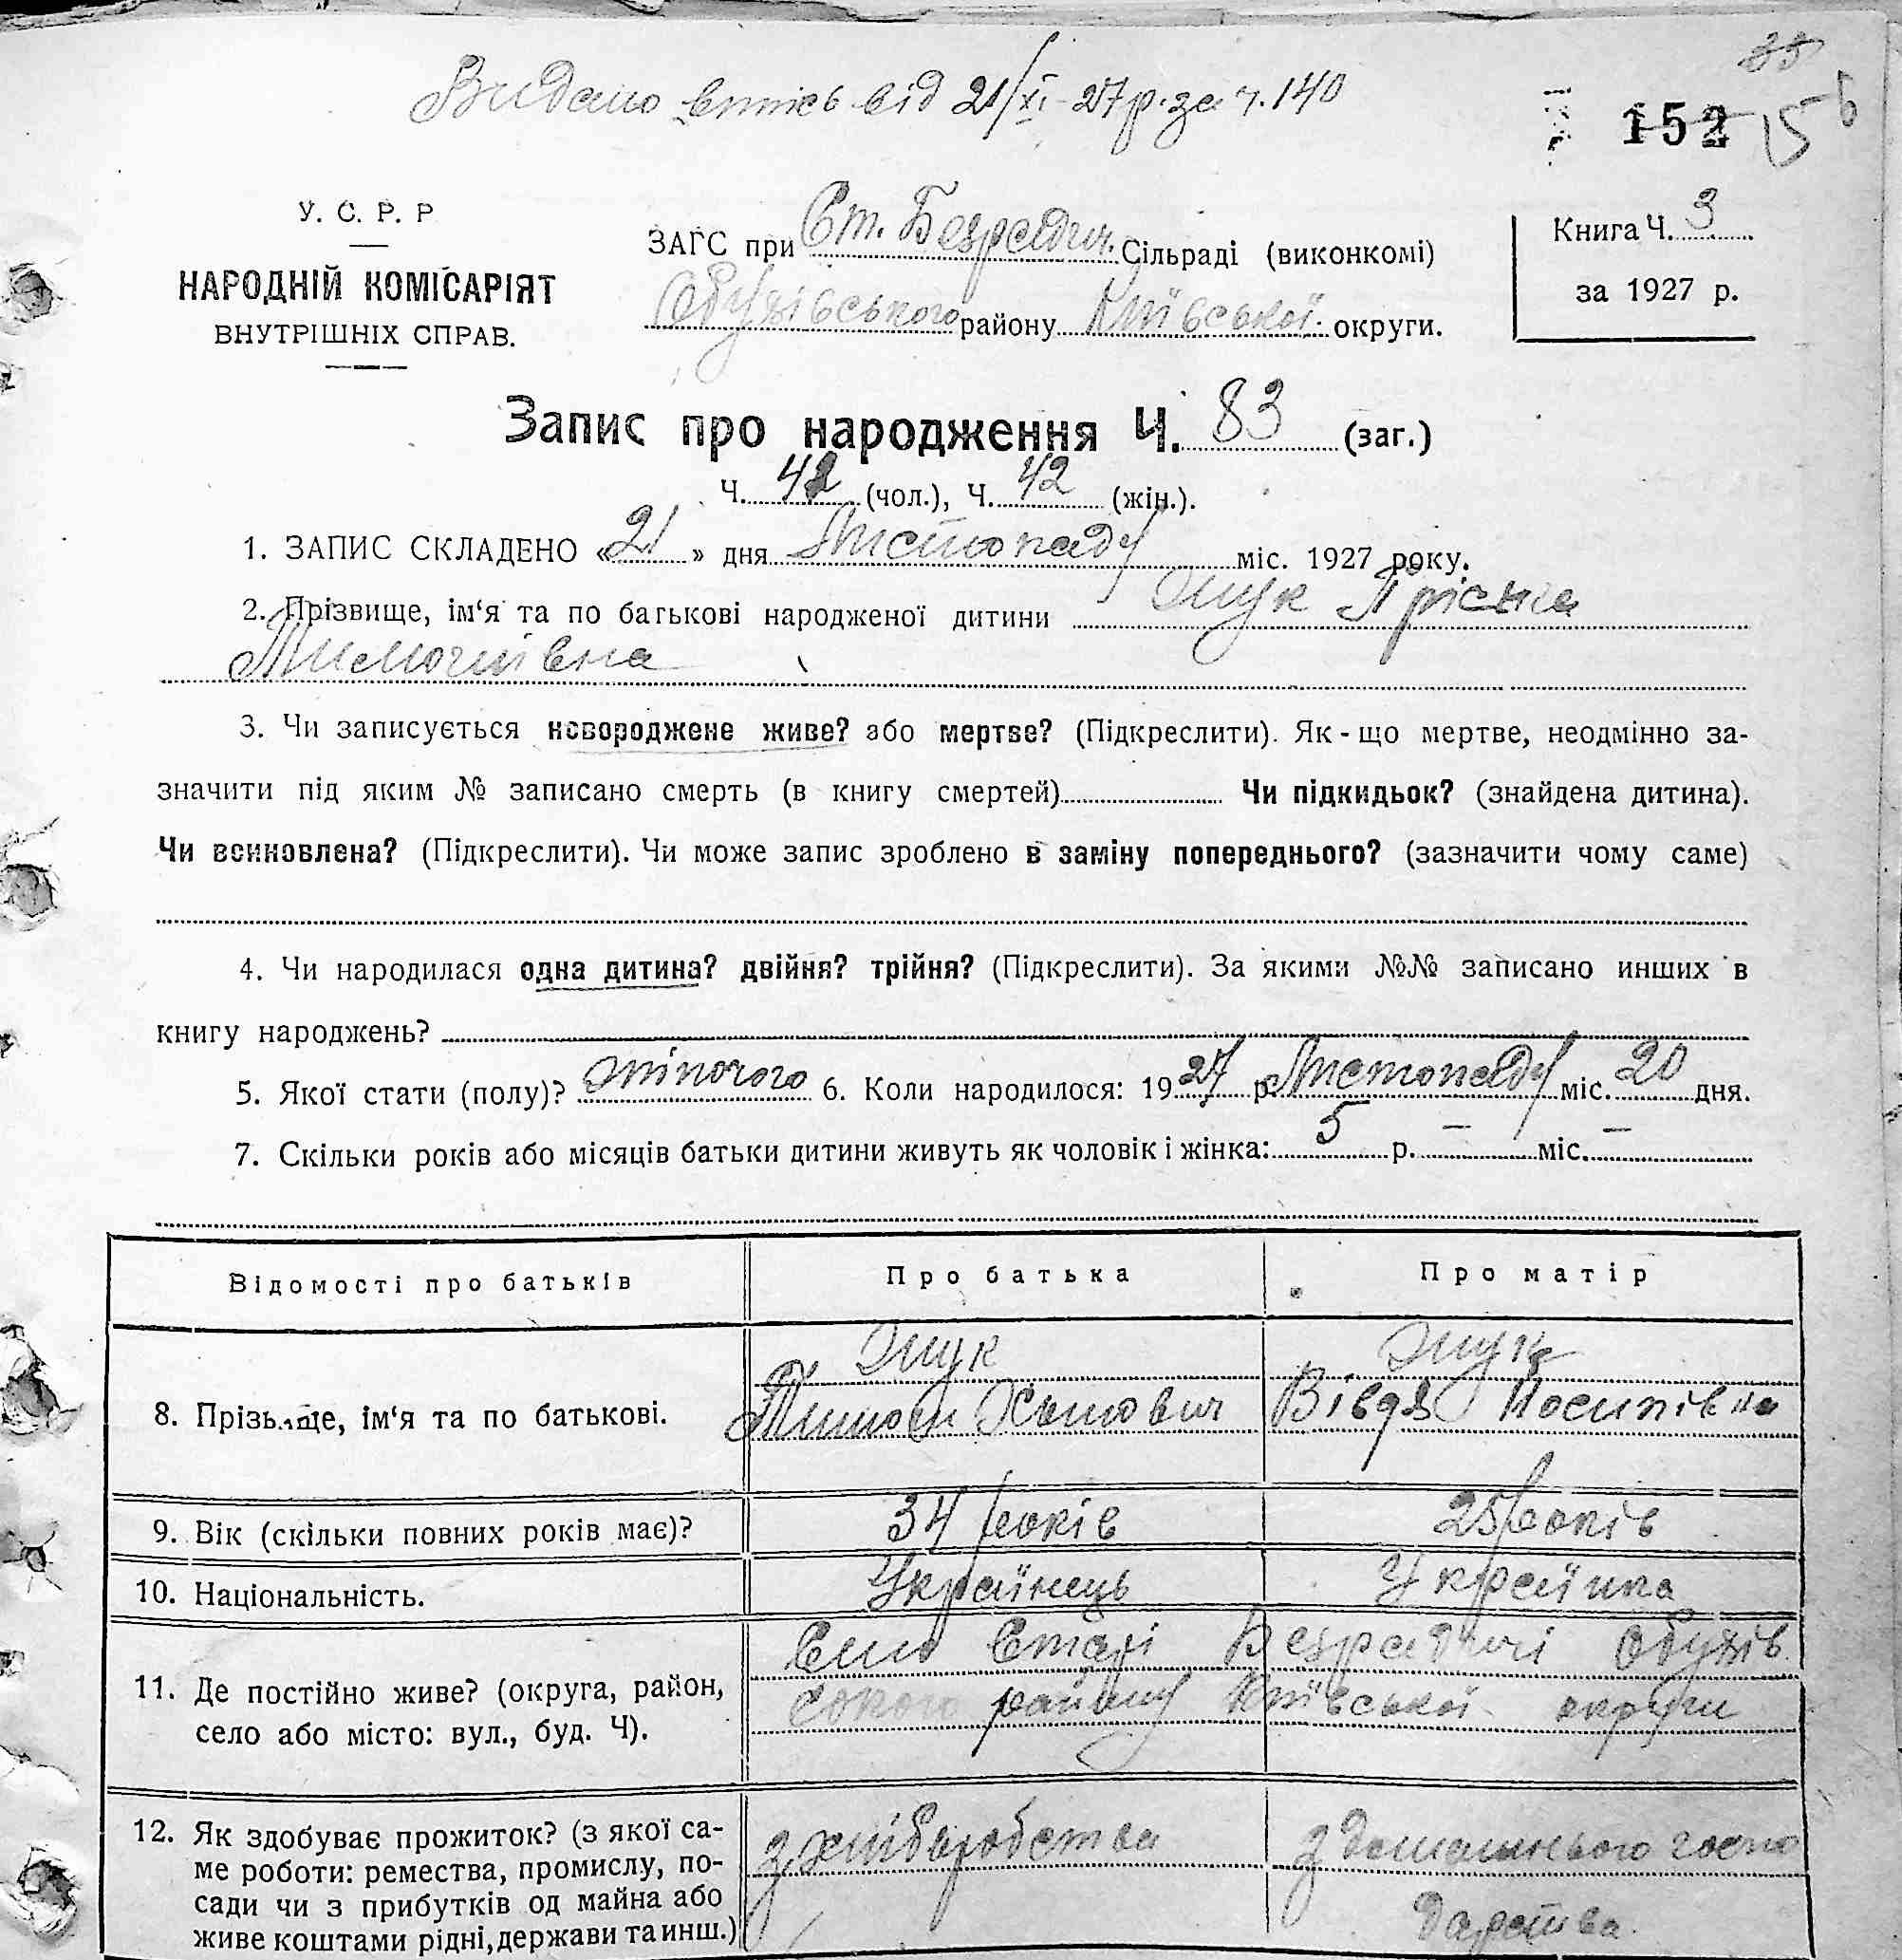 35
Видано витяг від 21/XI-27р. за ч. 140
152 156
У. С. Р. Р
НАРОДНІЙ КОМІСАРІЯТ
ВНУТРІШНІХ СПРАВ.
ЗАГС при Ст. Безрадич. Сільраді (виконкомі)
Обухівського району Київської округи.
Книга Ч. 3
за 1927 р.
Запис про народження Ч. 83 (заг.)
Ч. 42 (чол.), Ч. 42 (жін.).
1. ЗАПИС СКЛАДЕНО «21» дня Листопаду міс. 1927 року.
2. Прізвище, ім‘я та по батькові народженої дитини Пріська
Тимохіївна
3. Чи записується новороджене живе? або мертве? (Підкреслити). Як-що мертве, неодмінно за-
значити під яким № записано смерть (в книгу смертей) Чи підкидьок? (знайдена дитина).
Чи всиновлена? (Підкреслити). Чи може запис зроблено в заміну попереднього? (зазначити чому саме)
4. Чи народилася одна дитина? двійня? трійня? (Підкреслити). За якими №№ записано инших в
книгу народжень?
5. Якої стати (полу)? жіночого 6. Коли народилося: 1927 р. Листопаду міс. 20 дня.
7. Скільки років або місяців батьки дитини живуть як чоловік і жінка: 5 р. – міс. –
Відомості про батьків Про батька Про матір
8. Прізвище, ім‘я та по батькові.
Вівдя Йосипівна
9. Вік (скільки повних років має)? 34 років 25 років
10. Національність. Українець Українка
11. Де постійно живе? (округа, район,
село або місто: вул., буд. Ч).
Село Старі Безрадичі Обухів
ського району Київської округи
12. Як здобуває прожиток? (з якої са-
ме роботи: ремества, промислу, по-
сади чи з прибутків од майна або
живе коштами рідні, держави та инш.)
з хліборобства
з домашнього госпо
дарства.